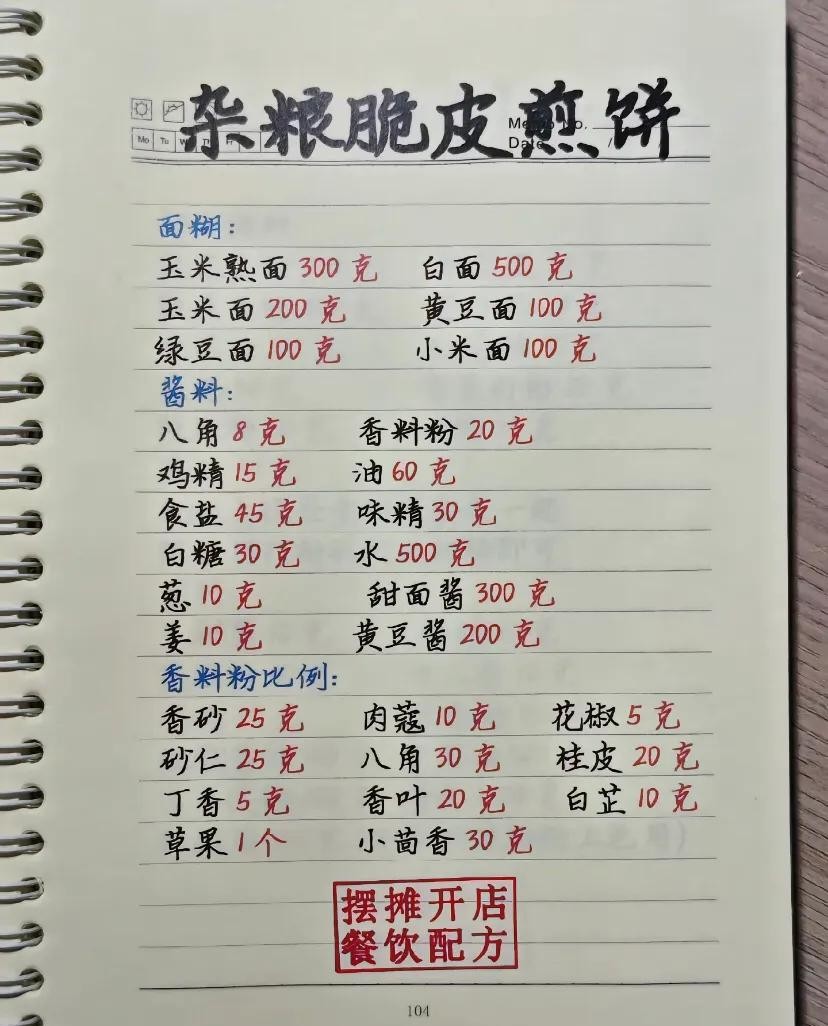 杂粮脆皮煎饼
Memo No.
Mo Tu
Date /
面糊:
玉米熟面 300 克 白面 500 克
玉米面 200 克 黄豆面 100 克
绿豆面 100 克 小米面 100 克
酱料:
八角 8 克 香料粉 20 克
鸡精 15 克 油 60 克
食盐 45 克 味精 30 克
白糖 30 克 水 500 克
葱 10 克 甜面酱 300 克
姜 10 克 黄豆酱 200 克
香料粉比例:
香砂 25 克 肉蔻 10 克 花椒 5 克
砂仁 25 克 八角 30 克 桂皮 20 克
丁香 5 克 香叶 20 克 白芷 10 克
草果 1 个 小茴香 30 克
摆摊开店
餐饮配方
104